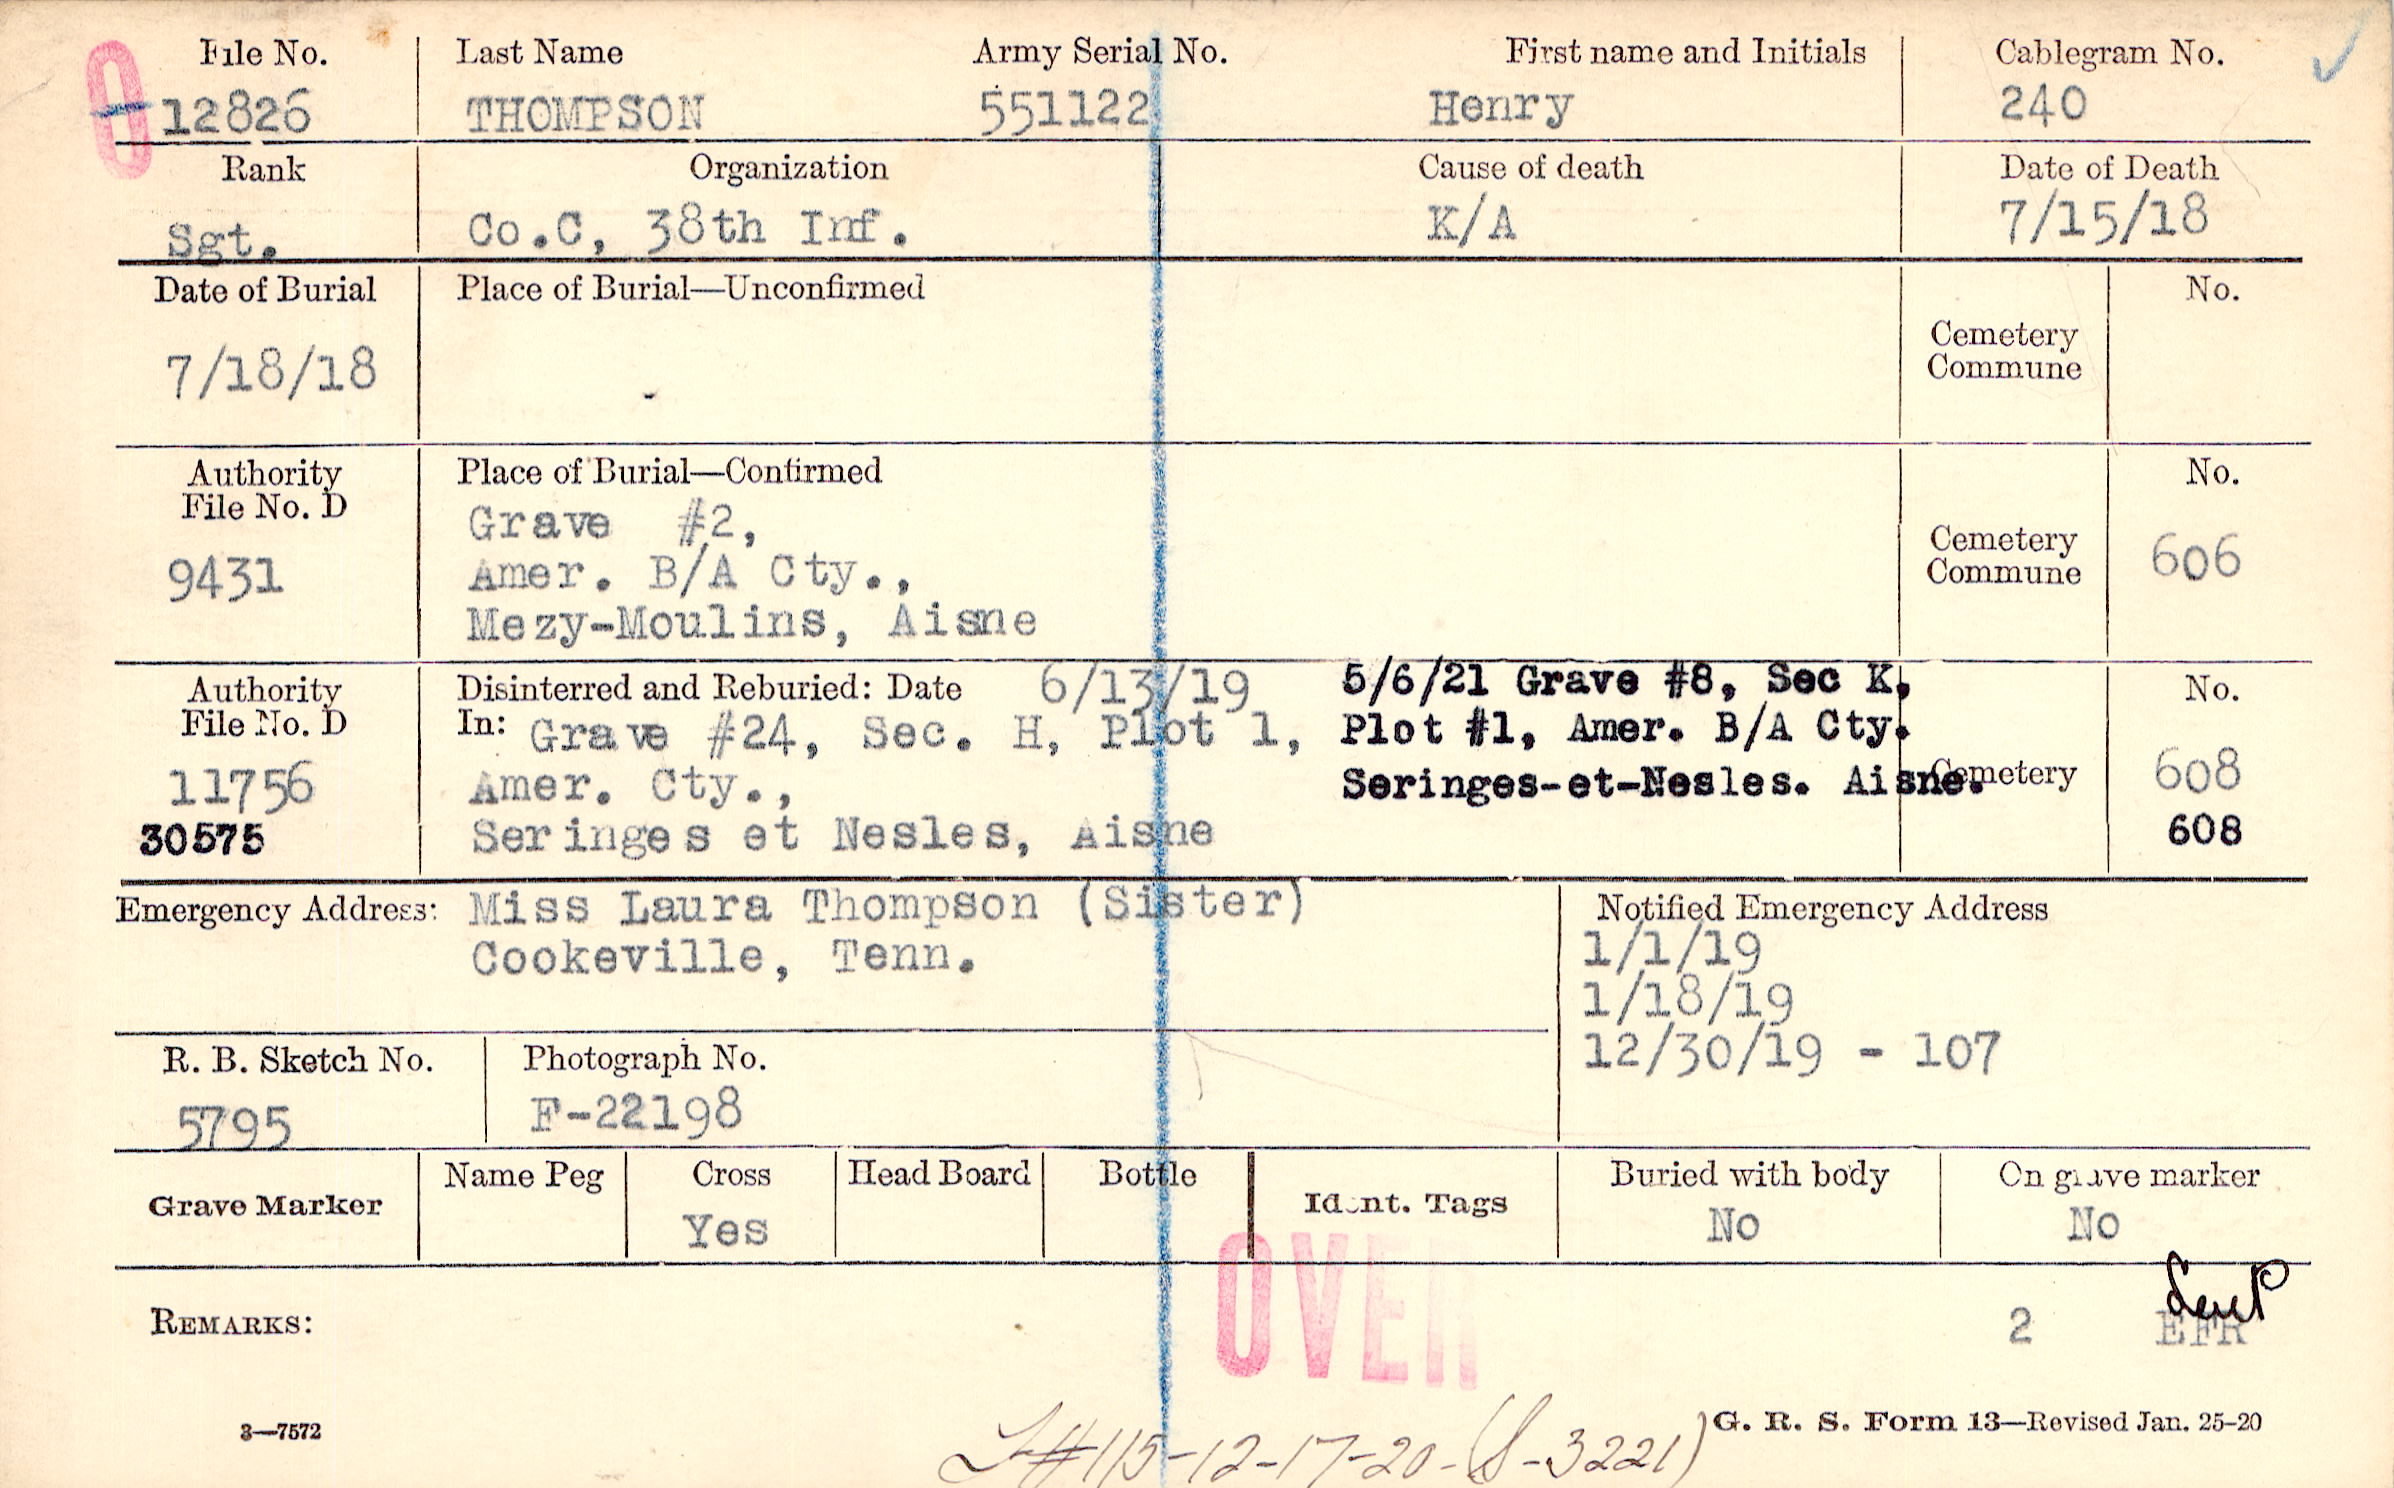 File No. Last Name Army Serial No. First name and Initials Cablegram No.
O 12826 THOMPSON 551122 Henry 240
Rank Organization Cause of death Date of Death
Sgt. Co.C, 38th Inf. K/A 7/15/18
Date of Burial Place of Burial—Unconfirmed No.
Cemetery
Commune
7/18/18
Authority Place of Burial—Confirmed No.
File No. D
Grave #2,
9431 Amer. B/A Cty., Cemetery
Commune 606
Mezy-Moulins, Aisne
Authority Disinterred and Reburied: Date 6/13/19 5/6/21 Grave #8, Sec K, No.
File No. D In: Grave #24, Sec. H, Plot 1, Plot #1, Amer. B/A Cty.
11756 Amer. Cty., Seringes-et-Nesles. Aisne. Cemetery 608
30575 Seringes et Nesles, Aisne 608
Emergency Address: Miss Laura Thompson (Sister) Notified Emergency Address
Cookeville, Tenn. 1/1/19
1/18/19
12/30/19 - 107
R. B. Sketch No. Photograph No.
5795 F-22198
Grave Marker Name Peg Cross Head Board Bottle Ident. Tags Buried with body On grave marker
Yes No No
OVER
REMARKS: 2 EFR
3—7572 G. R. S. Form 13—Revised Jan. 25-20
#115-12-17-20-(S-3221)